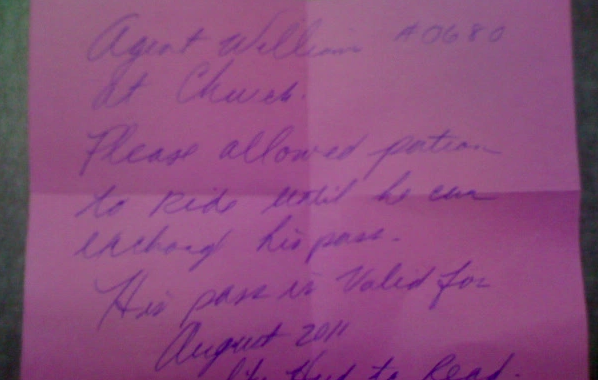 Agent William #0680
at Church.
Please allowed patron
to ride until he can
exchang his pass.
His pass is Valid for
August 2011
Hard to Read.